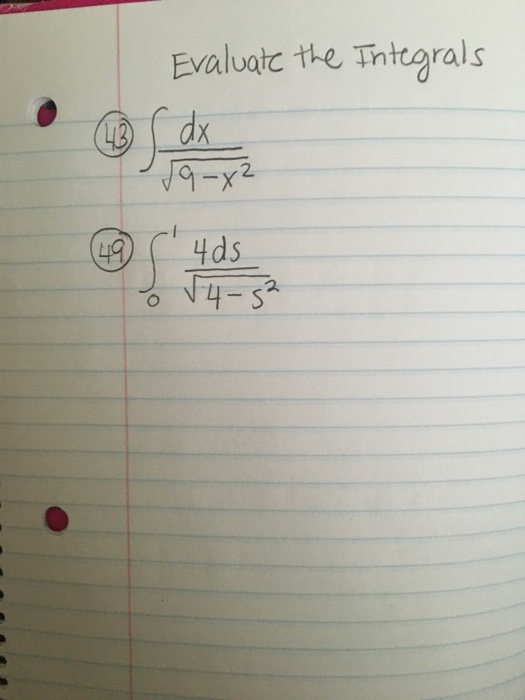 Evaluate the Integrals
43 ∫ dx / √9-x²
49 ∫₀¹ 4ds / √4-s²